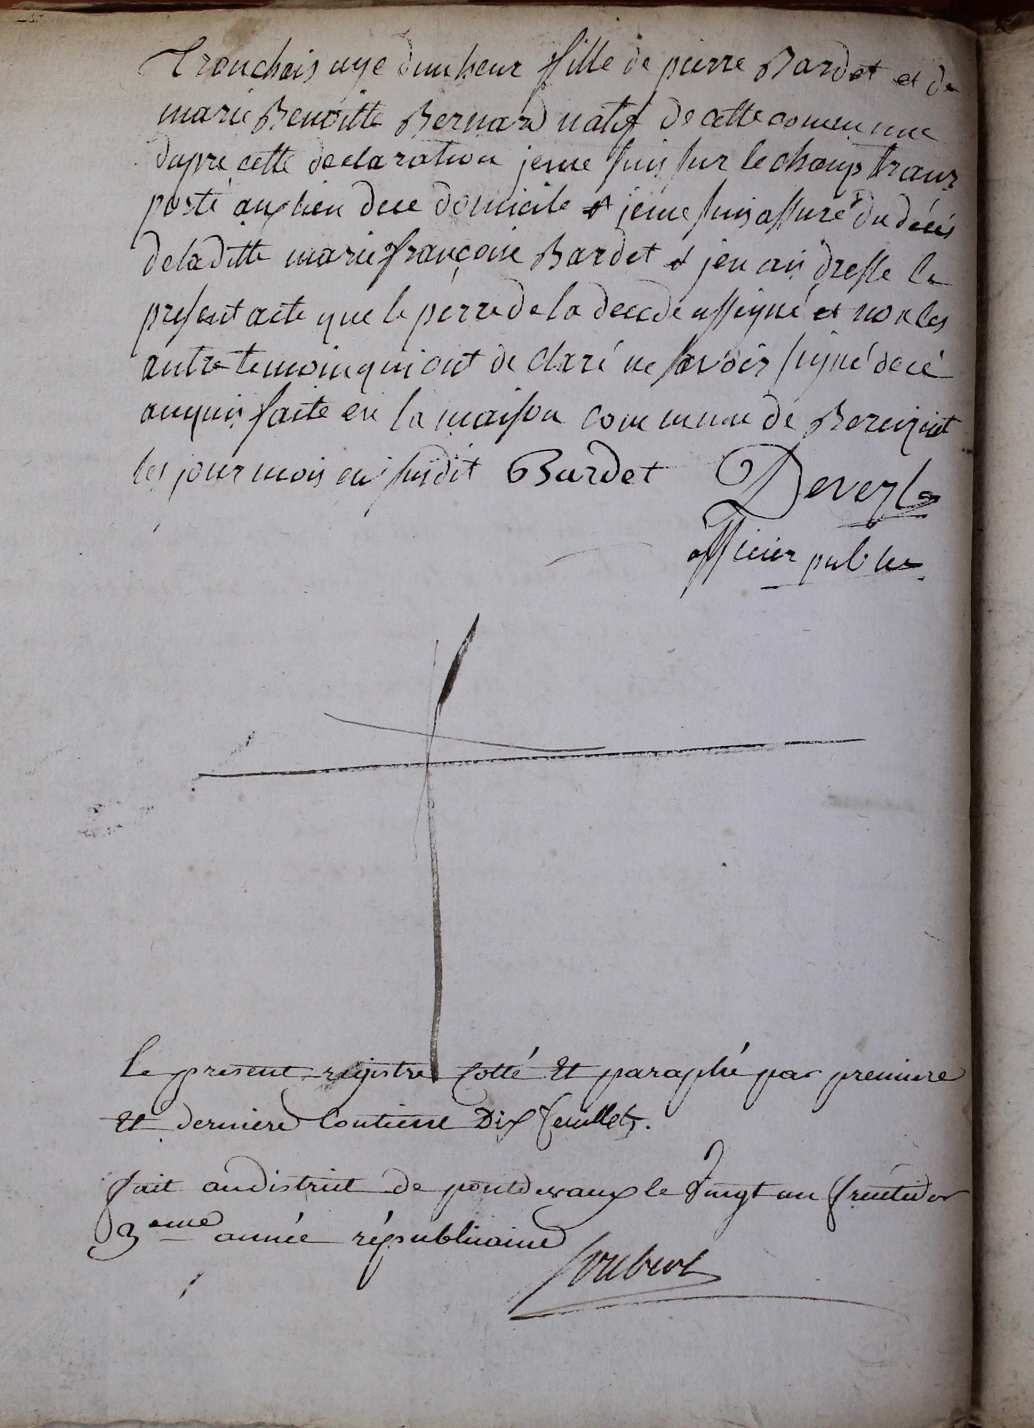 Franchois age dunheur fille de pierre Bardet et de
marie Benoitte Bernard natif de cette comeunne
dupre cette declaration jeme suis sur le champ trans
porté aux lieu dece domicile et jeme suis assuré du décés
deladitte marie françoise Bardet et jeu ai dresse le
present acte que le perre de la decede assigné et non les
autre temoin qui ont de claré ne savoir signé dece
anquis faite en la maison commune de
les jour mois en susdit Bardet Deveyle
officier public
Le present registre Cotté Et paraphé par premiere
Et derniere Contient Dix feuillets.
fait audistrict de pontdevaux le Vingt un fructidor
3eme année républicaine